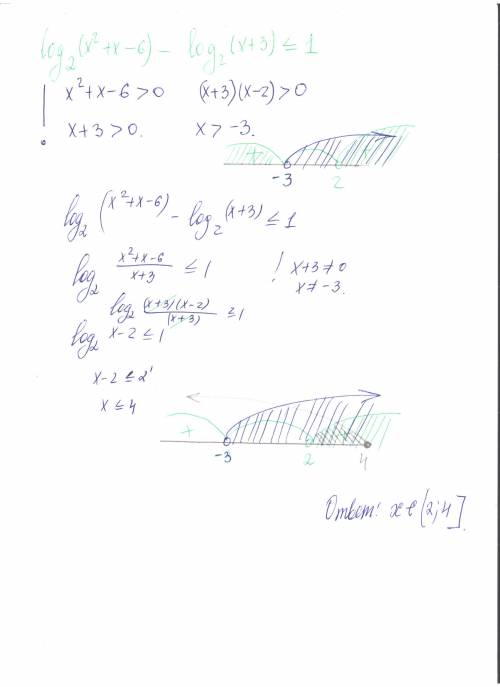 log₂(x²+x-6) - log₂(x+3) ≤ 1
x²+x-6>0 (x+3)(x-2)>0
! x+3>0. x>-3.
+ +
-3 2
log₂(x²+x-6) - log₂(x+3) ≤ 1
log₂ (x²+x-6)/(x+3) ≤ 1 ! x+3≠0
x≠-3.
log₂ (x+3)(x-2)/(x+3) ≤ 1
log₂ x-2 ≤ 1
x-2 ≤ 2¹
x ≤ 4
+
-3 2 4
Ответ: x∈(2;4].